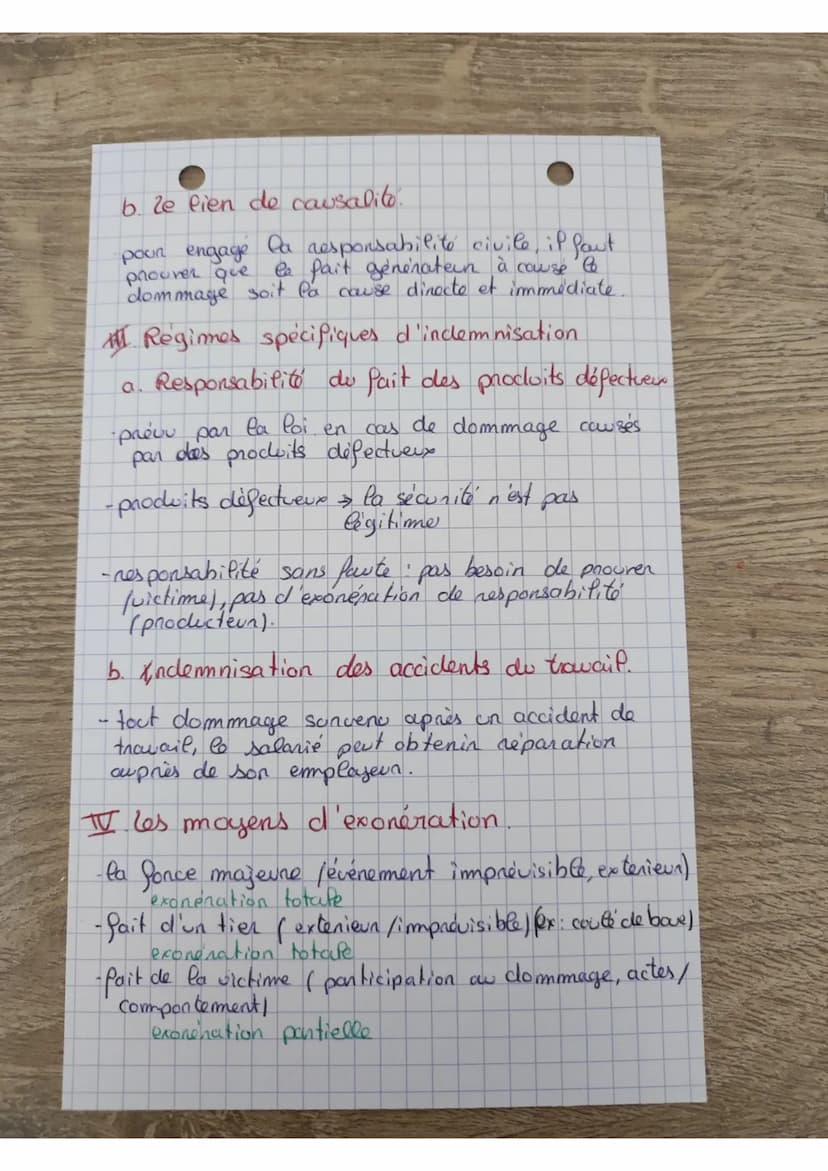 b. Le lien de causalité.
pour engagé la responsabilité civile, il faut
prouver que le fait générateur à causé le
dommage soit la cause directe et immédiate.
III Régimes spécifiques d'indemnisation
a. Responsabilité du fait des produits défectueux
-prévu par la loi en cas de dommage causés
par des produits défectueux
-produits défectueux → la sécurité n'est pas
légitime
-responsabilité sans faute : pas besoin de prouver
(victime), pas d'exonération de responsabilité
(producteur).
b. Indemnisation des accidents du travail.
- tout dommage survenu après un accident de
travail, le salarié peut obtenir réparation
auprès de son employeur.
IV Les moyens d'exonération.
-la force majeure (événement imprévisible, exterieur)
exonération totale
-fait d'un tier (exterieur/imprévisible) (ex: coulé de boue)
exonération totale
-fait de la victime (participation au dommage, actes/
comportement)
exonération partielle